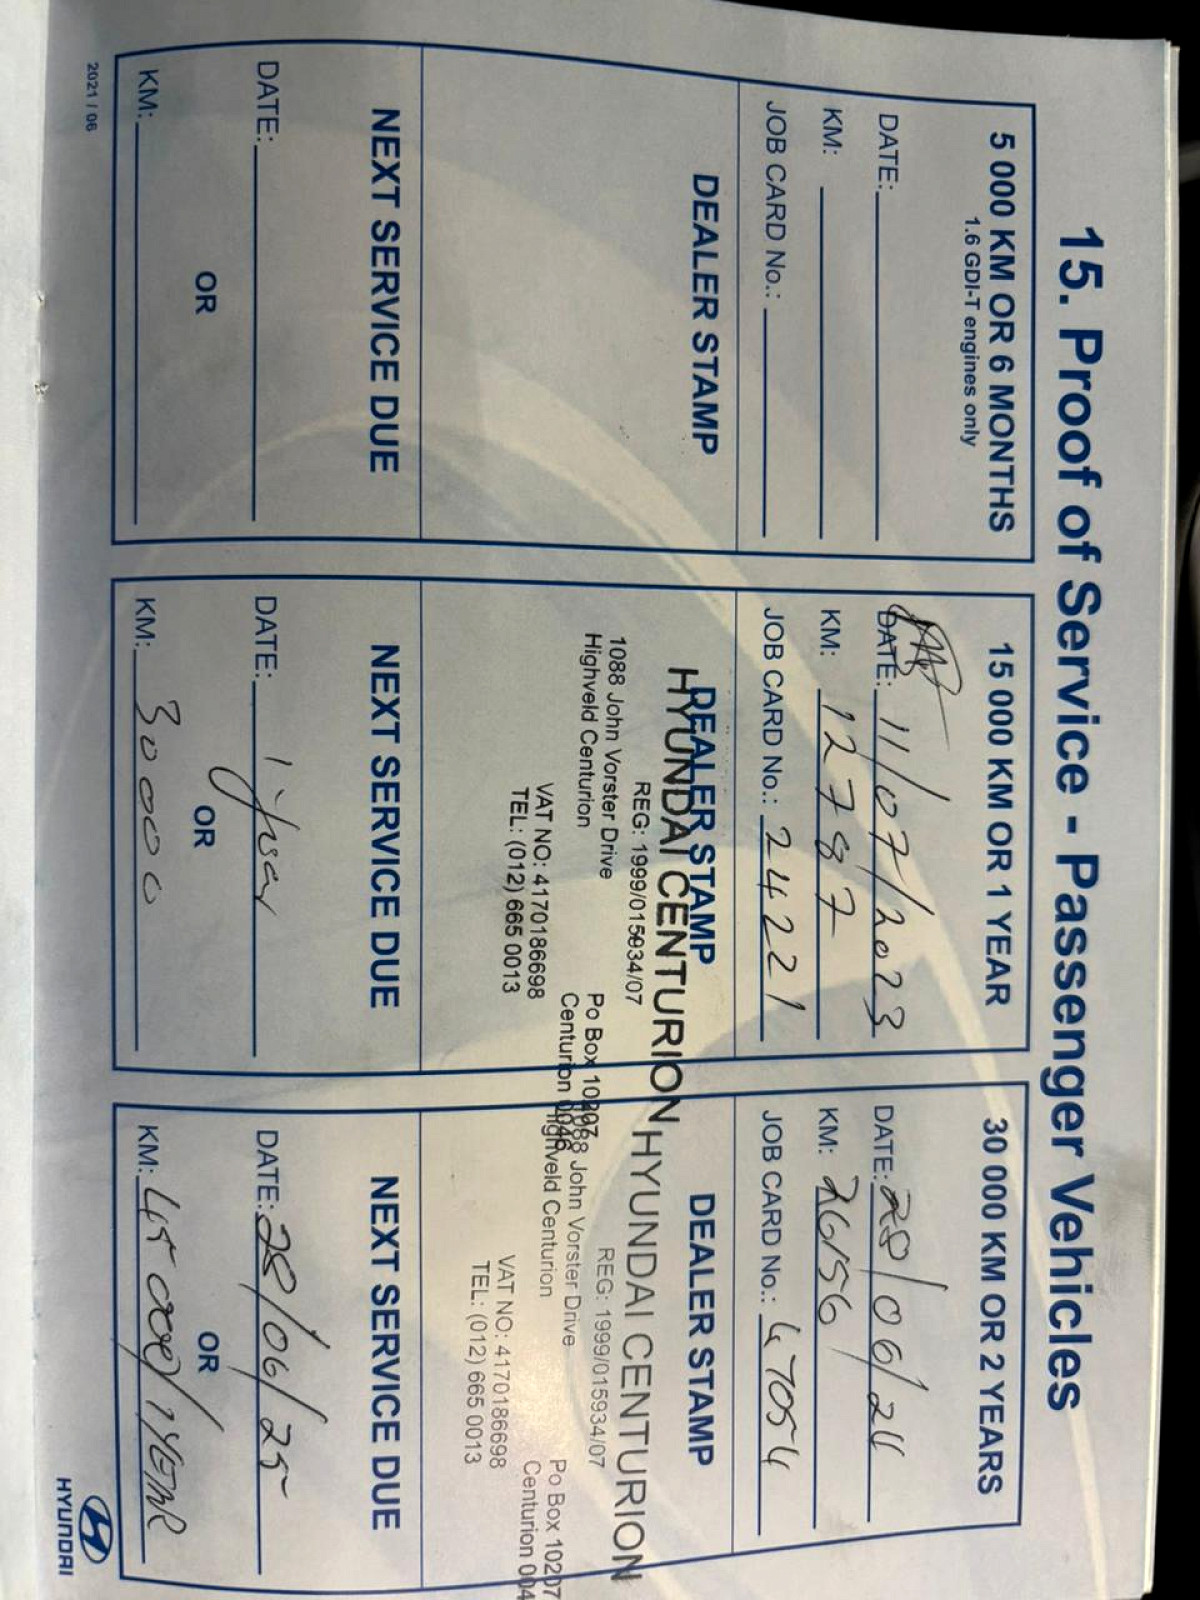 15. Proof of Service - Passenger Vehicles
5 000 KM OR 6 MONTHS
1.6 GDI-T engines only
DATE:
KM:
JOB CARD No.:
DEALER STAMP
NEXT SERVICE DUE
DATE:
OR
KM:
15 000 KM OR 1 YEAR
DATE: 11/07/2023
KM: 12787
JOB CARD No.: 24221
DEALER STAMP
HYUNDAI CENTURION
REG: 1999/015934/07
1088 John Vorster Drive
Highveld Centurion
Po Box 10207
Centurion 0046
VAT NO: 4170186698
TEL: (012) 665 0013
NEXT SERVICE DUE
DATE: 1 year
OR
KM: 30000
30 000 KM OR 2 YEARS
DATE: 28/06/24
KM: 26156
JOB CARD No.: 47054
DEALER STAMP
HYUNDAI CENTURION
REG: 1999/015934/07
1088 John Vorster Drive
Highveld Centurion
Po Box 10207
Centurion 004
VAT NO: 4170186698
TEL: (012) 665 0013
NEXT SERVICE DUE
DATE: 28/06/25
OR
KM: 45 000/1YEAR
2021 / 06
HYUNDAI